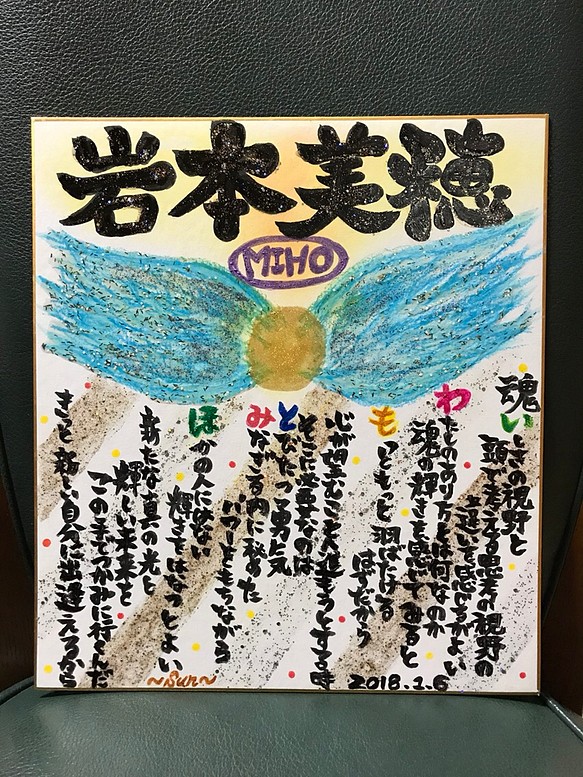 岩本美穂
MIHO
魂いしきの視野と
頭で考える思考の視野の
違いを感じるがよい
わたしのあり方とは何なのか
魂の輝きを感じてみると
もっともっと羽ばたける
はずだから
心が望むところへ進もうとする時
そこに必要なのは
とびたつ勇気
みなぎる内に秘めた
パワーをもちながら
ほかの人にはない
輝きをはなつとよい
新たな真の光と
輝しい未来を
この手でつかみに行くんだ
きっと新しい自分に出逢えるから
～Sun～
2018.1.6